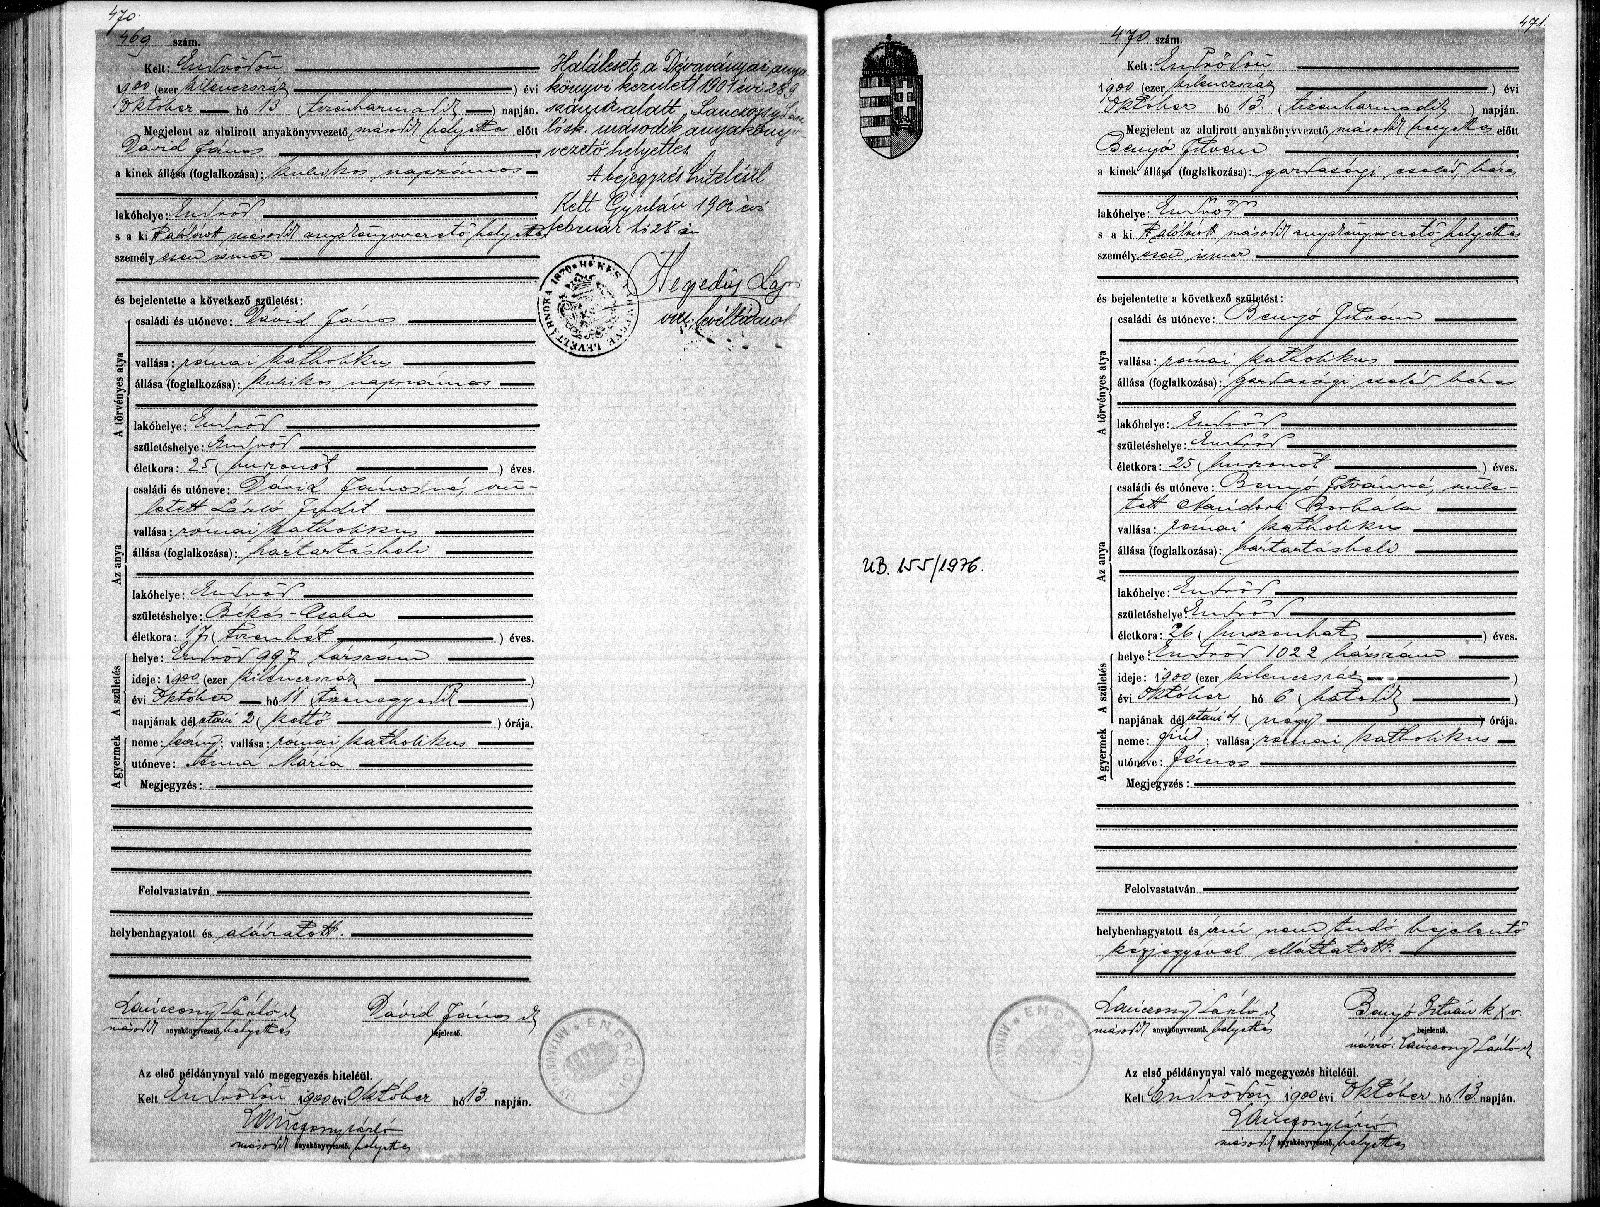 470
469 szám.
Kelt: Endrődön
1900 (ezer kilencszáz) évi
Október hó 13 (tizenharmadik) napján.
Megjelent az alulirott anyakönyvvezető, második helyettes előtt
Dávid János
a kinek állása (foglalkozása): kubikos napszámos
lakóhelye: Endrőd
s a ki t alólirott második anyakönyvvezető helyettes
személyesen ismer
és bejelentette a következő születést:
A törvényes atya
családi és utóneve: Dávid János
vallása: római katholikus
állása (foglalkozása): kubikos napszámos
lakóhelye: Endrőd
születéshelye: Endrőd
életkora: 25 (huszonöt) éves.
Az anya
családi és utóneve: Dávid Jánosné, szü-
letett László Judit
vallása: római katholikus
állása (foglalkozása): háztartásbeli
lakóhelye: Endrőd
születéshelye: Békés-Csaba
életkora: 17 (tizenhét) éves.
A születés
helye: Endrőd 997 házszám
ideje: 1900 (ezer kilencszáz)
évi Október hó 11 (tizenegyedik)
napjának dél utáni 2 (kettő) órája.
A gyermek
neme: leány; vallása: római katholikus
utóneve: Anna Mária
Megjegyzés:
Felolvastatván
helybenhagyatott és aláiratott.
Lánczony László sk
második anyakönyvvezető, helyettes
Dávid János sk
bejelentő.
Az első példánynyal való megegyezés hiteléül.
Kelt Endrődön 1900 évi Október hó 13 napján.
második anyakönyvvezető, helyettes
Halálesete a Dévaványai anya
könyvi kerület 1901 évi 289
szám alatt
második anyakönyv
vezető helyettes
A bejegyzés hiteléül
Kelt Gyulán 1902 évi
február hó 28 án
Hegedűs Lajos
vm. levéltárnok
BÉKÉS VÁRMEGYE LEVÉLTÁRNOKA 1879
471.
470 szám.
Kelt: Endrődön
1900 (ezer kilencszáz) évi
Október hó 13 (tizenharmadik) napján.
Megjelent az alulirott anyakönyvvezető, második helyettes előtt
Benyó István
a kinek állása (foglalkozása): gazdasági cseléd, béres
lakóhelye: Endrőd
s a ki t alólirott második anyakönyvvezető helyettes
személyesen ismer
és bejelentette a következő születést:
A törvényes atya
családi és utóneve: Benyó István
vallása: római katholikus
állása (foglalkozása): gazdasági cseléd béres
lakóhelye: Endrőd
születéshelye: Endrőd
életkora: 25 (huszonöt) éves.
Az anya
családi és utóneve: Benyó Istvánné, szüle-
tett Nándori Borbála
vallása: római katholikus
állása (foglalkozása): háztartásbeli
lakóhelye: Endrőd
születéshelye: Endrőd
életkora: 26 (huszonhat) éves.
A születés
helye: Endrőd 1022 házszám
ideje: 1900 (ezer kilencszáz)
évi Október hó 6 (hatodik)
napjának dél utáni 4 (négy) órája.
A gyermek
neme: fiú; vallása: római katholikus
utóneve: János
Megjegyzés:
Felolvastatván
helybenhagyatott és írni nem tudó bejelentő
kézjegyével elláttatott.
Lánczony László sk
második anyakönyvvezető, helyettes
Benyó István k x v.
bejelentő.
névíró: Lánczony László sk
Az első példánynyal való megegyezés hiteléül.
Kelt Endrődön 1900 évi Október hó 13 napján.
második anyakönyvvezető, helyettes
UB. 155/1976.